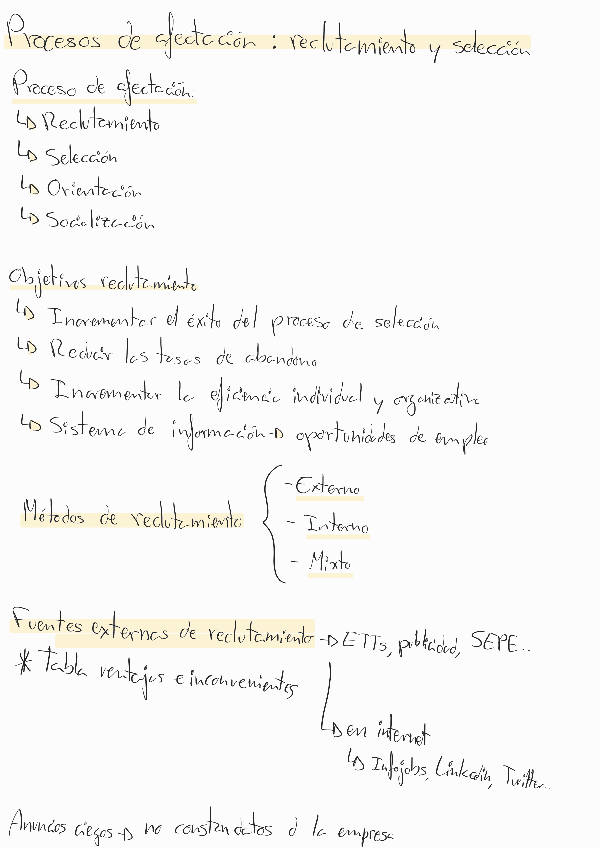 Procesos de afectación : reclutamiento y selección
Proceso de afectación
↳ Reclutamiento
↳ Selección
↳ Orientación
↳ Socialización
Objetivos reclutamiento
↳ Incrementar el éxito del proceso de selección
↳ Reducir las tasas de abandono
↳ Incrementar la eficiencia individual y organizativa
↳ Sistema de información → oportunidades de empleo
Métodos de reclutamiento
- Externo
- Interno
- Mixto
Fuentes externas de reclutamiento → ETTs, publicidad, SEPE..
* Tabla ventajas e inconvenientes
↳ en internet
↳ Infojobs, Linkedin, Twitter...
Anuncios ciegos → no constan datos d la empresa